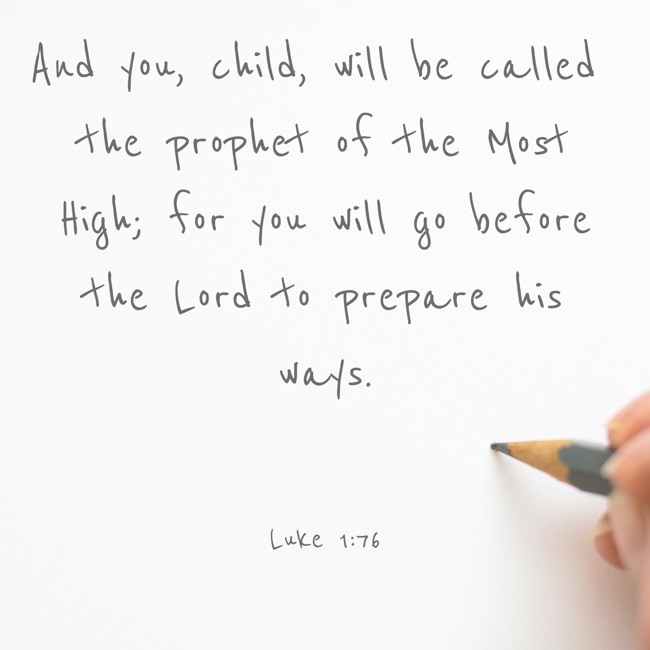 And you, child, will be called
the prophet of the Most
High; for you will go before
the Lord to prepare his
ways.
Luke 1:76